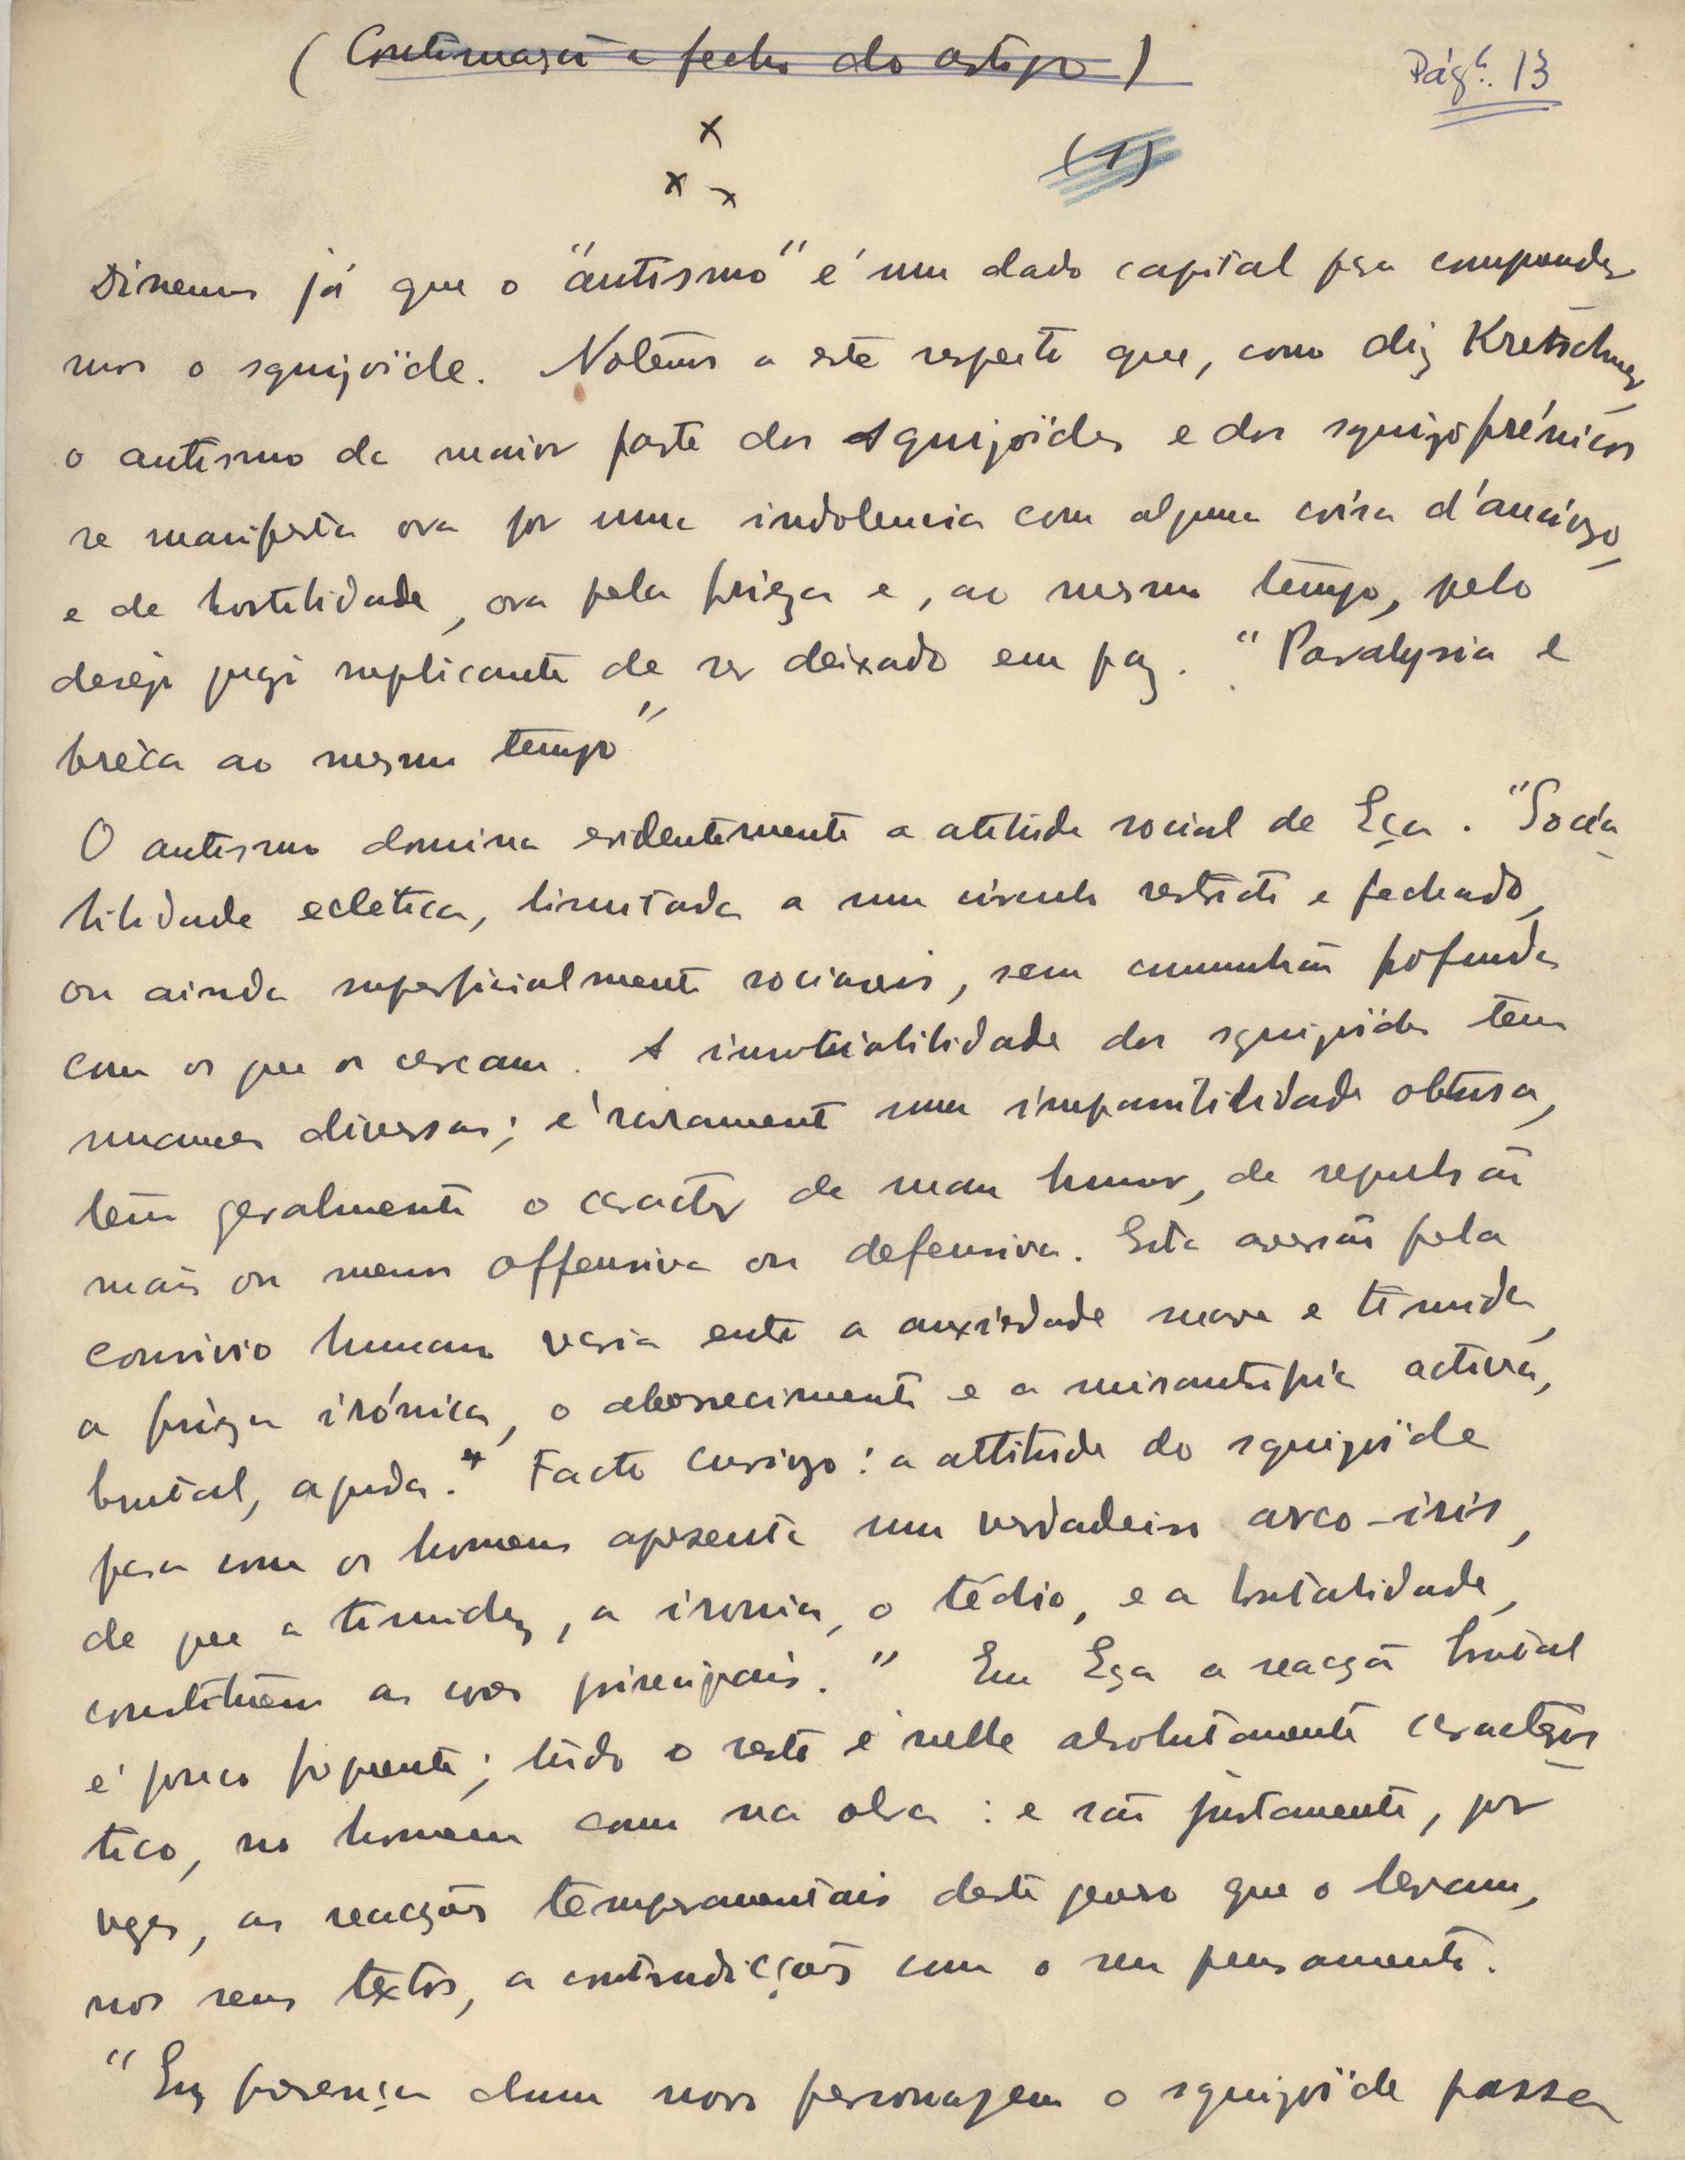 (Continuação e fecho do artigo)
Pág. 13
x
x x
(1)
Dissemos já que o "autismo" é um dado capital pra comprender
mos o squizoïde. Notemos a este respeito que, como diz Kretschmer,
o autismo da maior parte dos squizoïdes e dos squizofrénicos
se manifesta ora por uma indolencia com alguma coisa d'ancioso
e de hostilidade, ora pela frieza e, ao mesmo tempo, pelo
desejo quasi suplicante de ser deixado em paz. "Paralysia e
breca ao mesmo tempo"
O autismo domina evidentemente a atitude social de Eça. "Socia
bilidade eclética, limitada a um circulo restricto e fechado,
ou ainda superficialmente sociaveis, sem comunhão profunda
com os que os cercam. A insociabilidade dos squizoïdes tem
nuances diversas; é raramente uma impassibilidade obtusa,
tem geralmente o caracter de mau humor, de repulsão
mais ou menos offensiva ou defensiva. Esta aversão pelo
convivio humano varia entre a anxiedade suave e timida,
a frieza irónica, o aborrecimento e a misantropia activa,
brutal, aguda." Facto curioso: a attitude do squizoïde
para com os homens apresenta um verdadeiro arco-iris,
de que a timidez, a ironia, o tédio, e a brutalidade,
constituem as cores principais." Em Eça a reacção brutal
é pouco frequente; tudo o resto é nelle absolutamente caracteris
tico, no homem como na obra: e são justamente, por
vezes, as reacções temperamentais deste genero que o levam,
nos seus textos, a contradicções com o seu pensamento.
"Em presença dum novo personagem o squizoïde passa